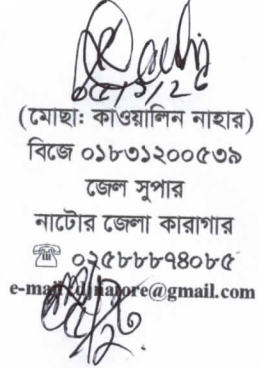 (মোছা: কাওয়ালিন নাহার)
বিজে ০১৮৩১২০০৫৩৯
জেল সুপার
নাটোর জেলা কারাগার
☎ ০২৫৮৮৮৭৪০৮৫
e-mail: djnatore@gmail.com